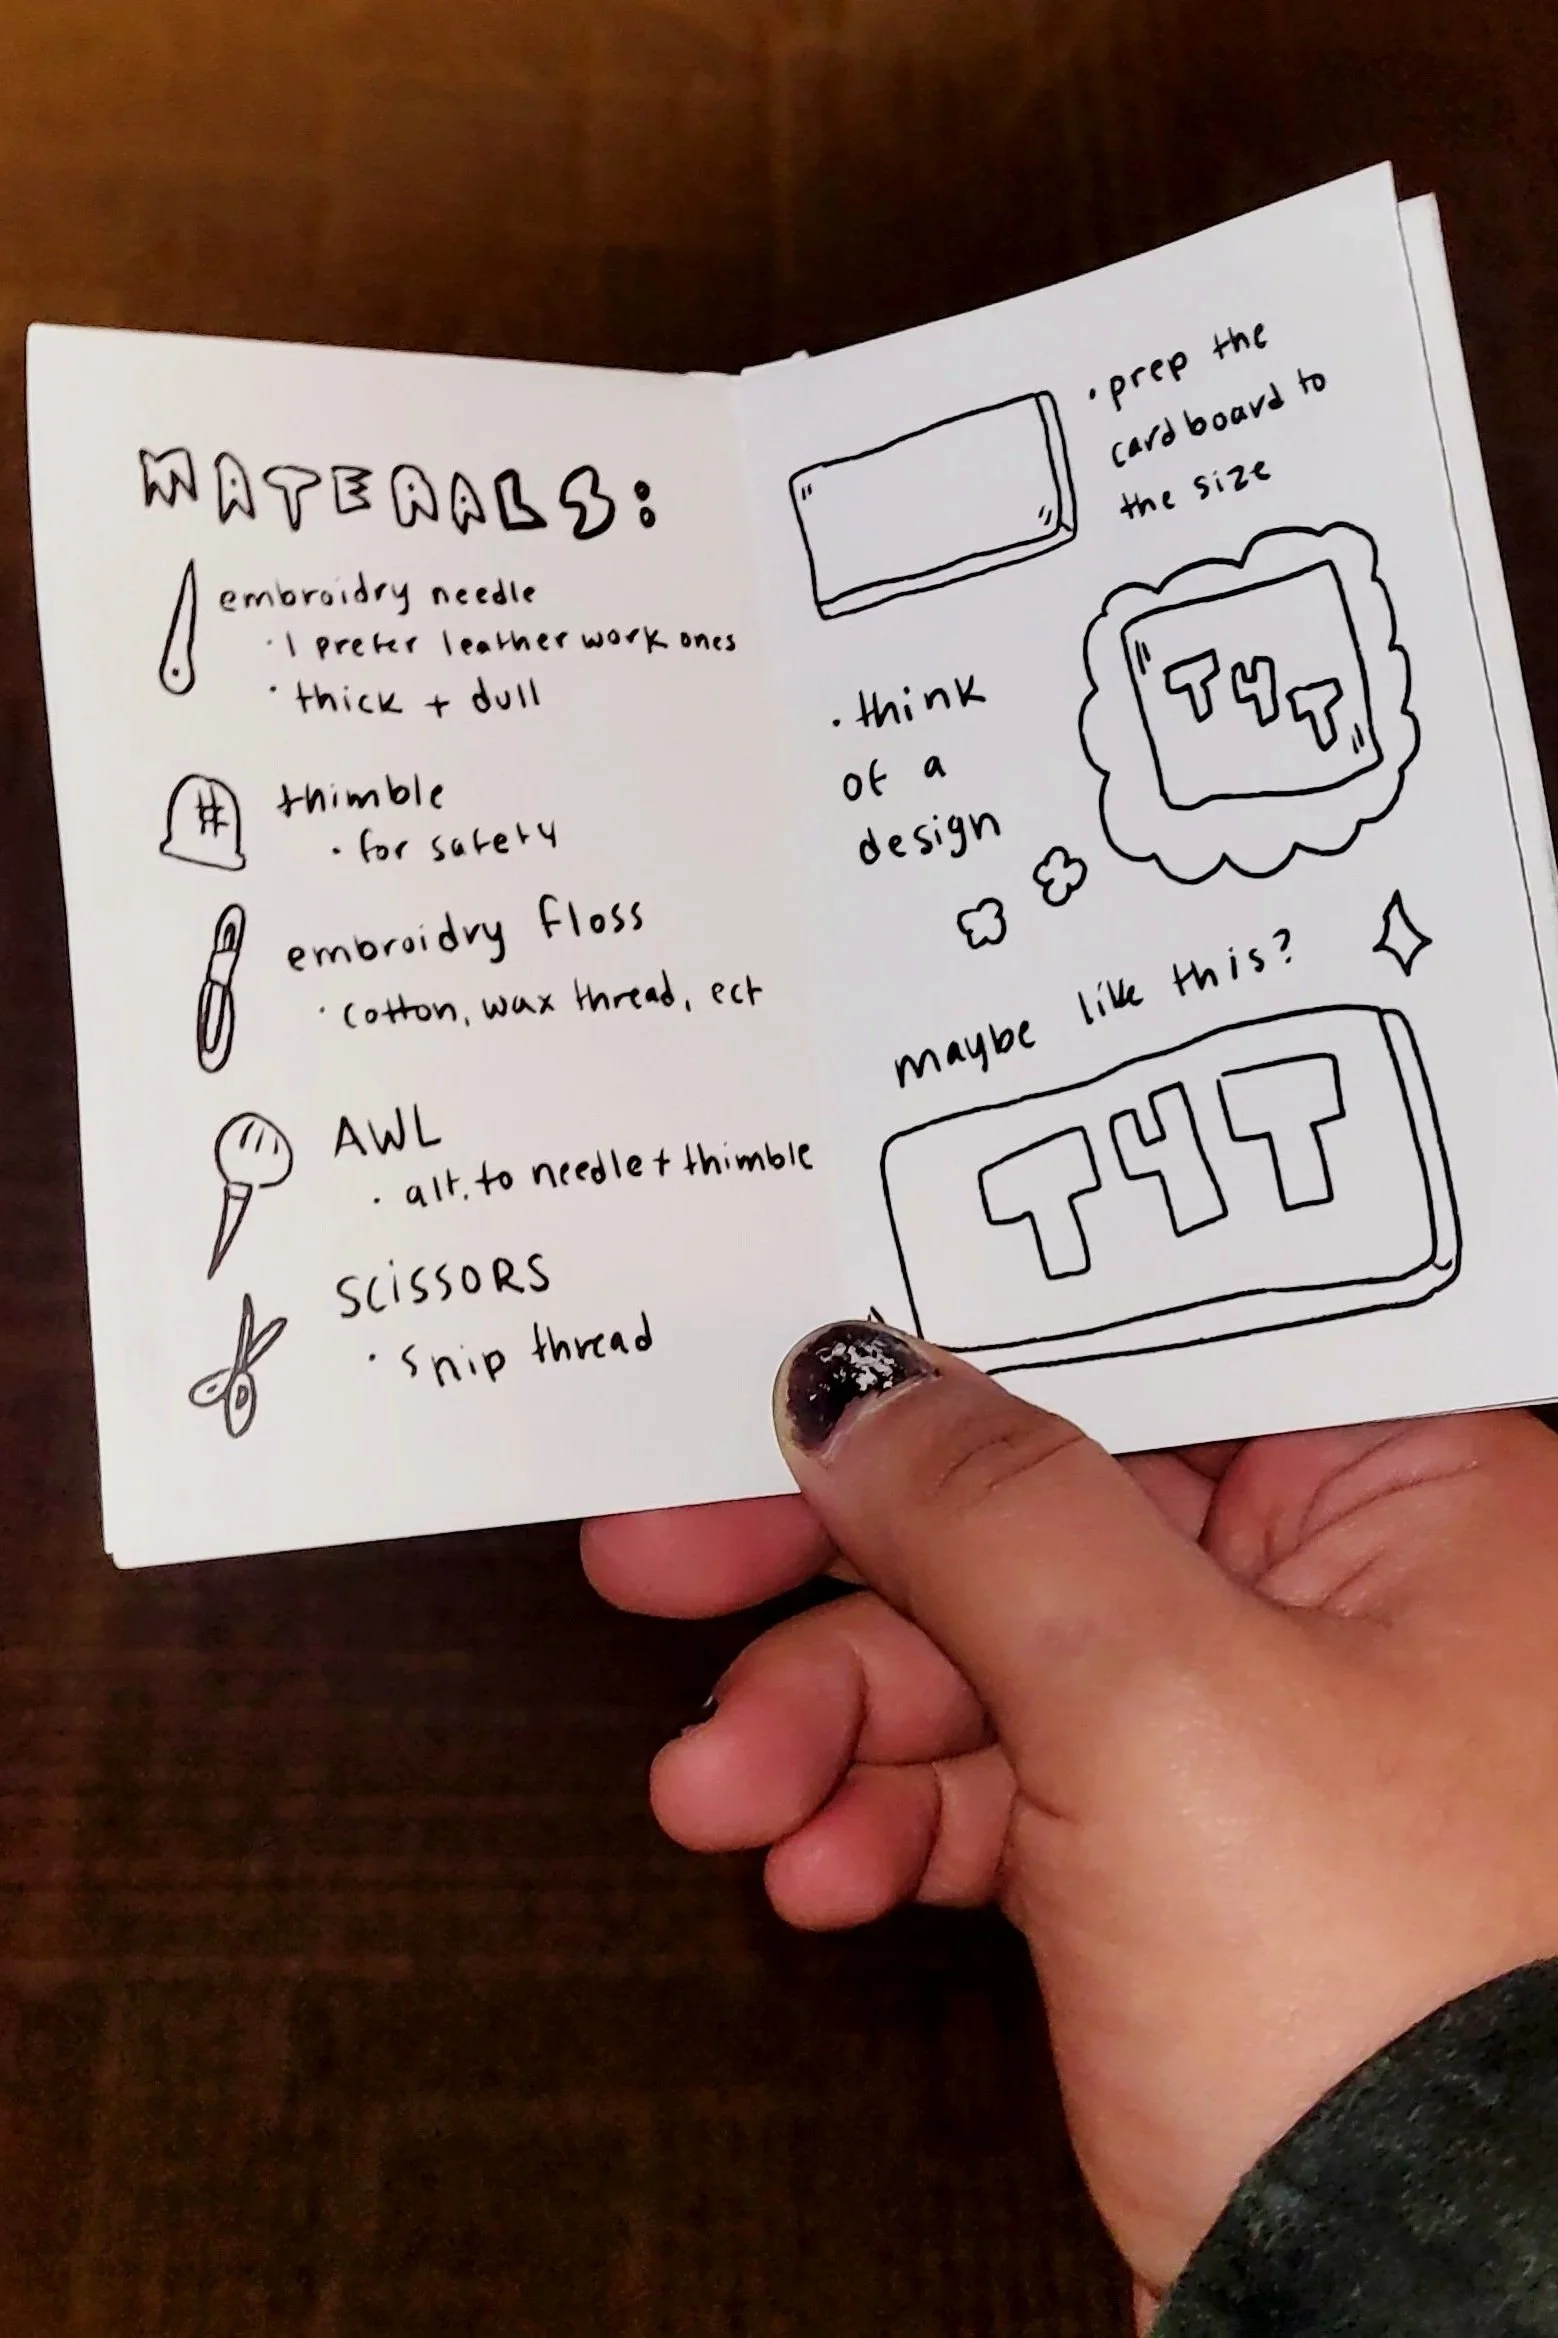 MATERAALS:
embroidry needle
· I prefer leather work ones
· thick + dull
thimble
· for safety
embroidry floss
· cotton, wax thread, ect
AWL
· alt. to needle + thimble
SCISSORS
· snip thread
· prep the
cardboard to
the size
T4T
· think
of a
design
maybe like this?
T4T